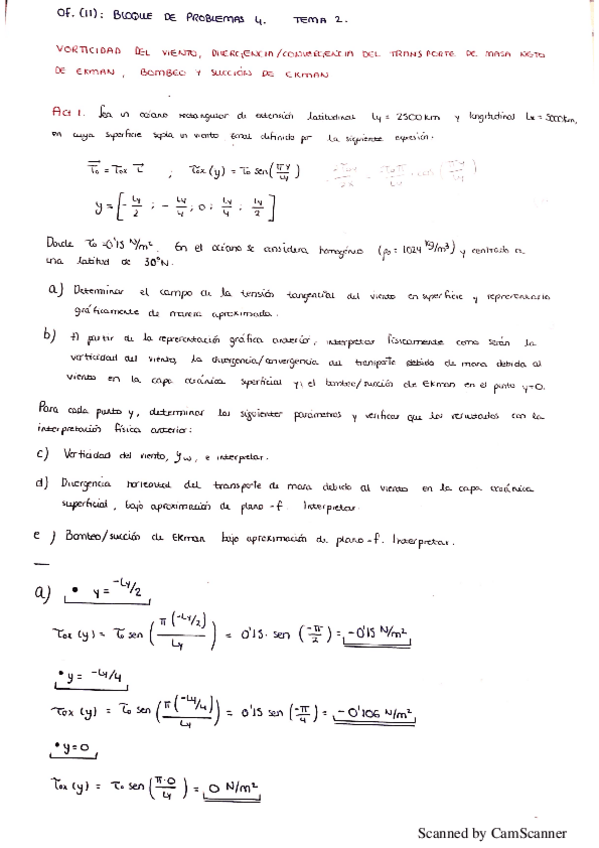 OF. (II): BLOQUE DE PROBLEMAS 4. TEMA 2.
VORTICIDAD DEL VIENTO, DIVERGENCIA/CONVERGENCIA DEL TRANSPORTE DE MASA NETO
DE EKMAN, BOMBEO Y SUCCIÓN DE EKMAN
Act 1. Sea un océano rectangular de extensión latitudinal Ly = 2500 km y longitudinal Lx = 5000 km,
en cuya superficie sopla un viento zonal definido por la siguiente expresión.
τ⃗o = τox i⃗ ; τox(y) = τo sen(πy/Ly)
y = [-Ly/2 ; -Ly/4 ; 0 ; Ly/4 ; Ly/2]
Donde τo = 0'15 N/m². En el océano se considera homogéneo (ρo = 1024 kg/m³) y centrado a
una latitud de 30°N.
a) Determinar el campo de la tensión tangencial del viento en superficie y representarlo
gráficamente de manera aproximada.
b) A partir de la representación gráfica anterior, interpretar físicamente como serán la
vorticidad del viento, la divergencia/convergencia del transporte debido de masa debida al
viento en la capa oceánica superficial y, el bombeo/succión de Ekman en el punto y=0.
Para cada punto y, determinar los siguientes parámetros y verificar que los resultados con la
interpretación física anterior:
c) Vorticidad del viento, ζw, e interpretar.
d) Divergencia horizontal del transporte de masa debido al viento en la capa oceánica
superficial, bajo aproximación de plano-f. Interpretar.
e) Bombeo/succión de Ekman bajo aproximación de plano-f. Interpretar.
a) • y = -Ly/2
τox (y) = τo sen (π(-Ly/2)/Ly) = 0'15 · sen (-π/2) = -0'15 N/m²
• y = -Ly/4
τox (y) = τo sen (π(-Ly/4)/Ly) = 0'15 sen (-π/4) = -0'106 N/m²
• y=0
τox (y) = τo sen (π·0/Ly) = 0 N/m²
Scanned by CamScanner